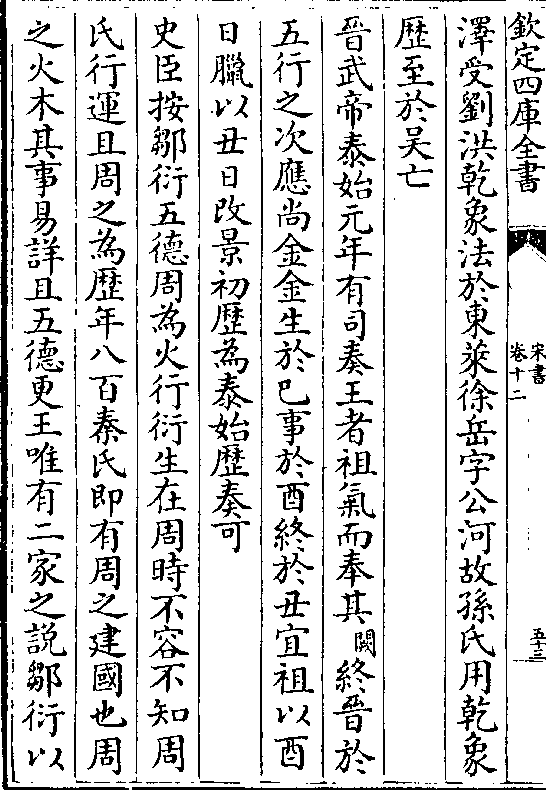 欽定四庫全書
宋書
卷十二
五十三
澤受劉洪乾象法於東萊徐岳字公河故孫氏用乾象
歴至於吴亡
晉武帝泰始元年有司奏王者祖氣而奉其闕終晉於
五行之次應尚金金生於巳事於酉終於丑宜祖以酉
日臘以丑日改景初歴為泰始歴奏可
史臣按鄒衍五德周為火行衍生在周時不容不知周
氏行運且周之為歴年八百秦氏即有周之建國也周
之火木其事易詳且五德更王唯有二家之説鄒衍以